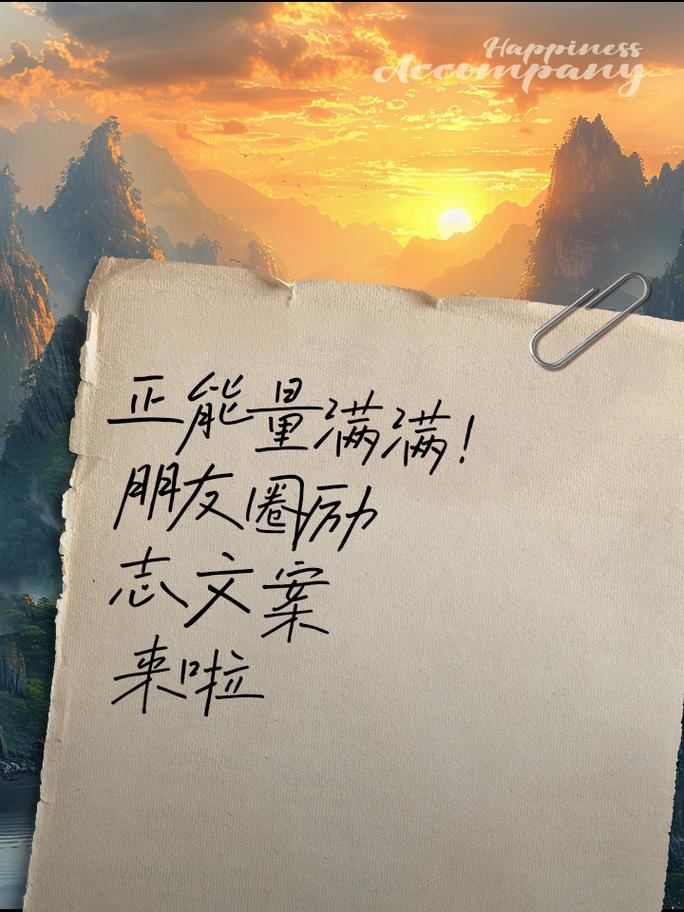 Happiness
Accompany
正能量满满！
朋友圈励
志文案
来啦